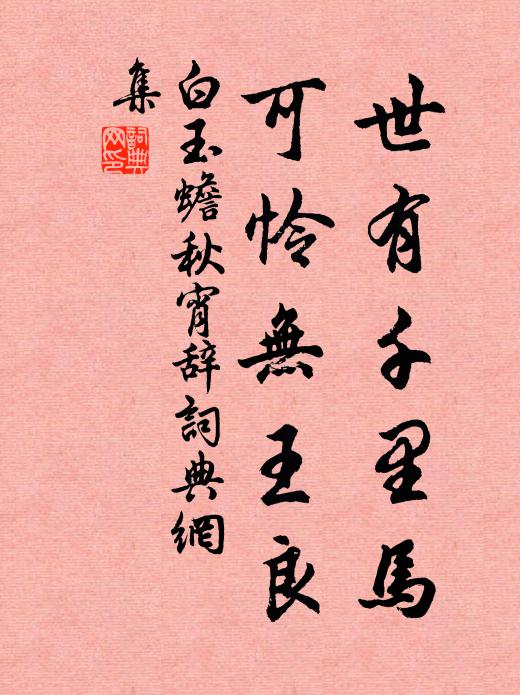 世有千里馬
可怜無王良
白玉蟾秋宵辞詞典網
集
詞典
网印